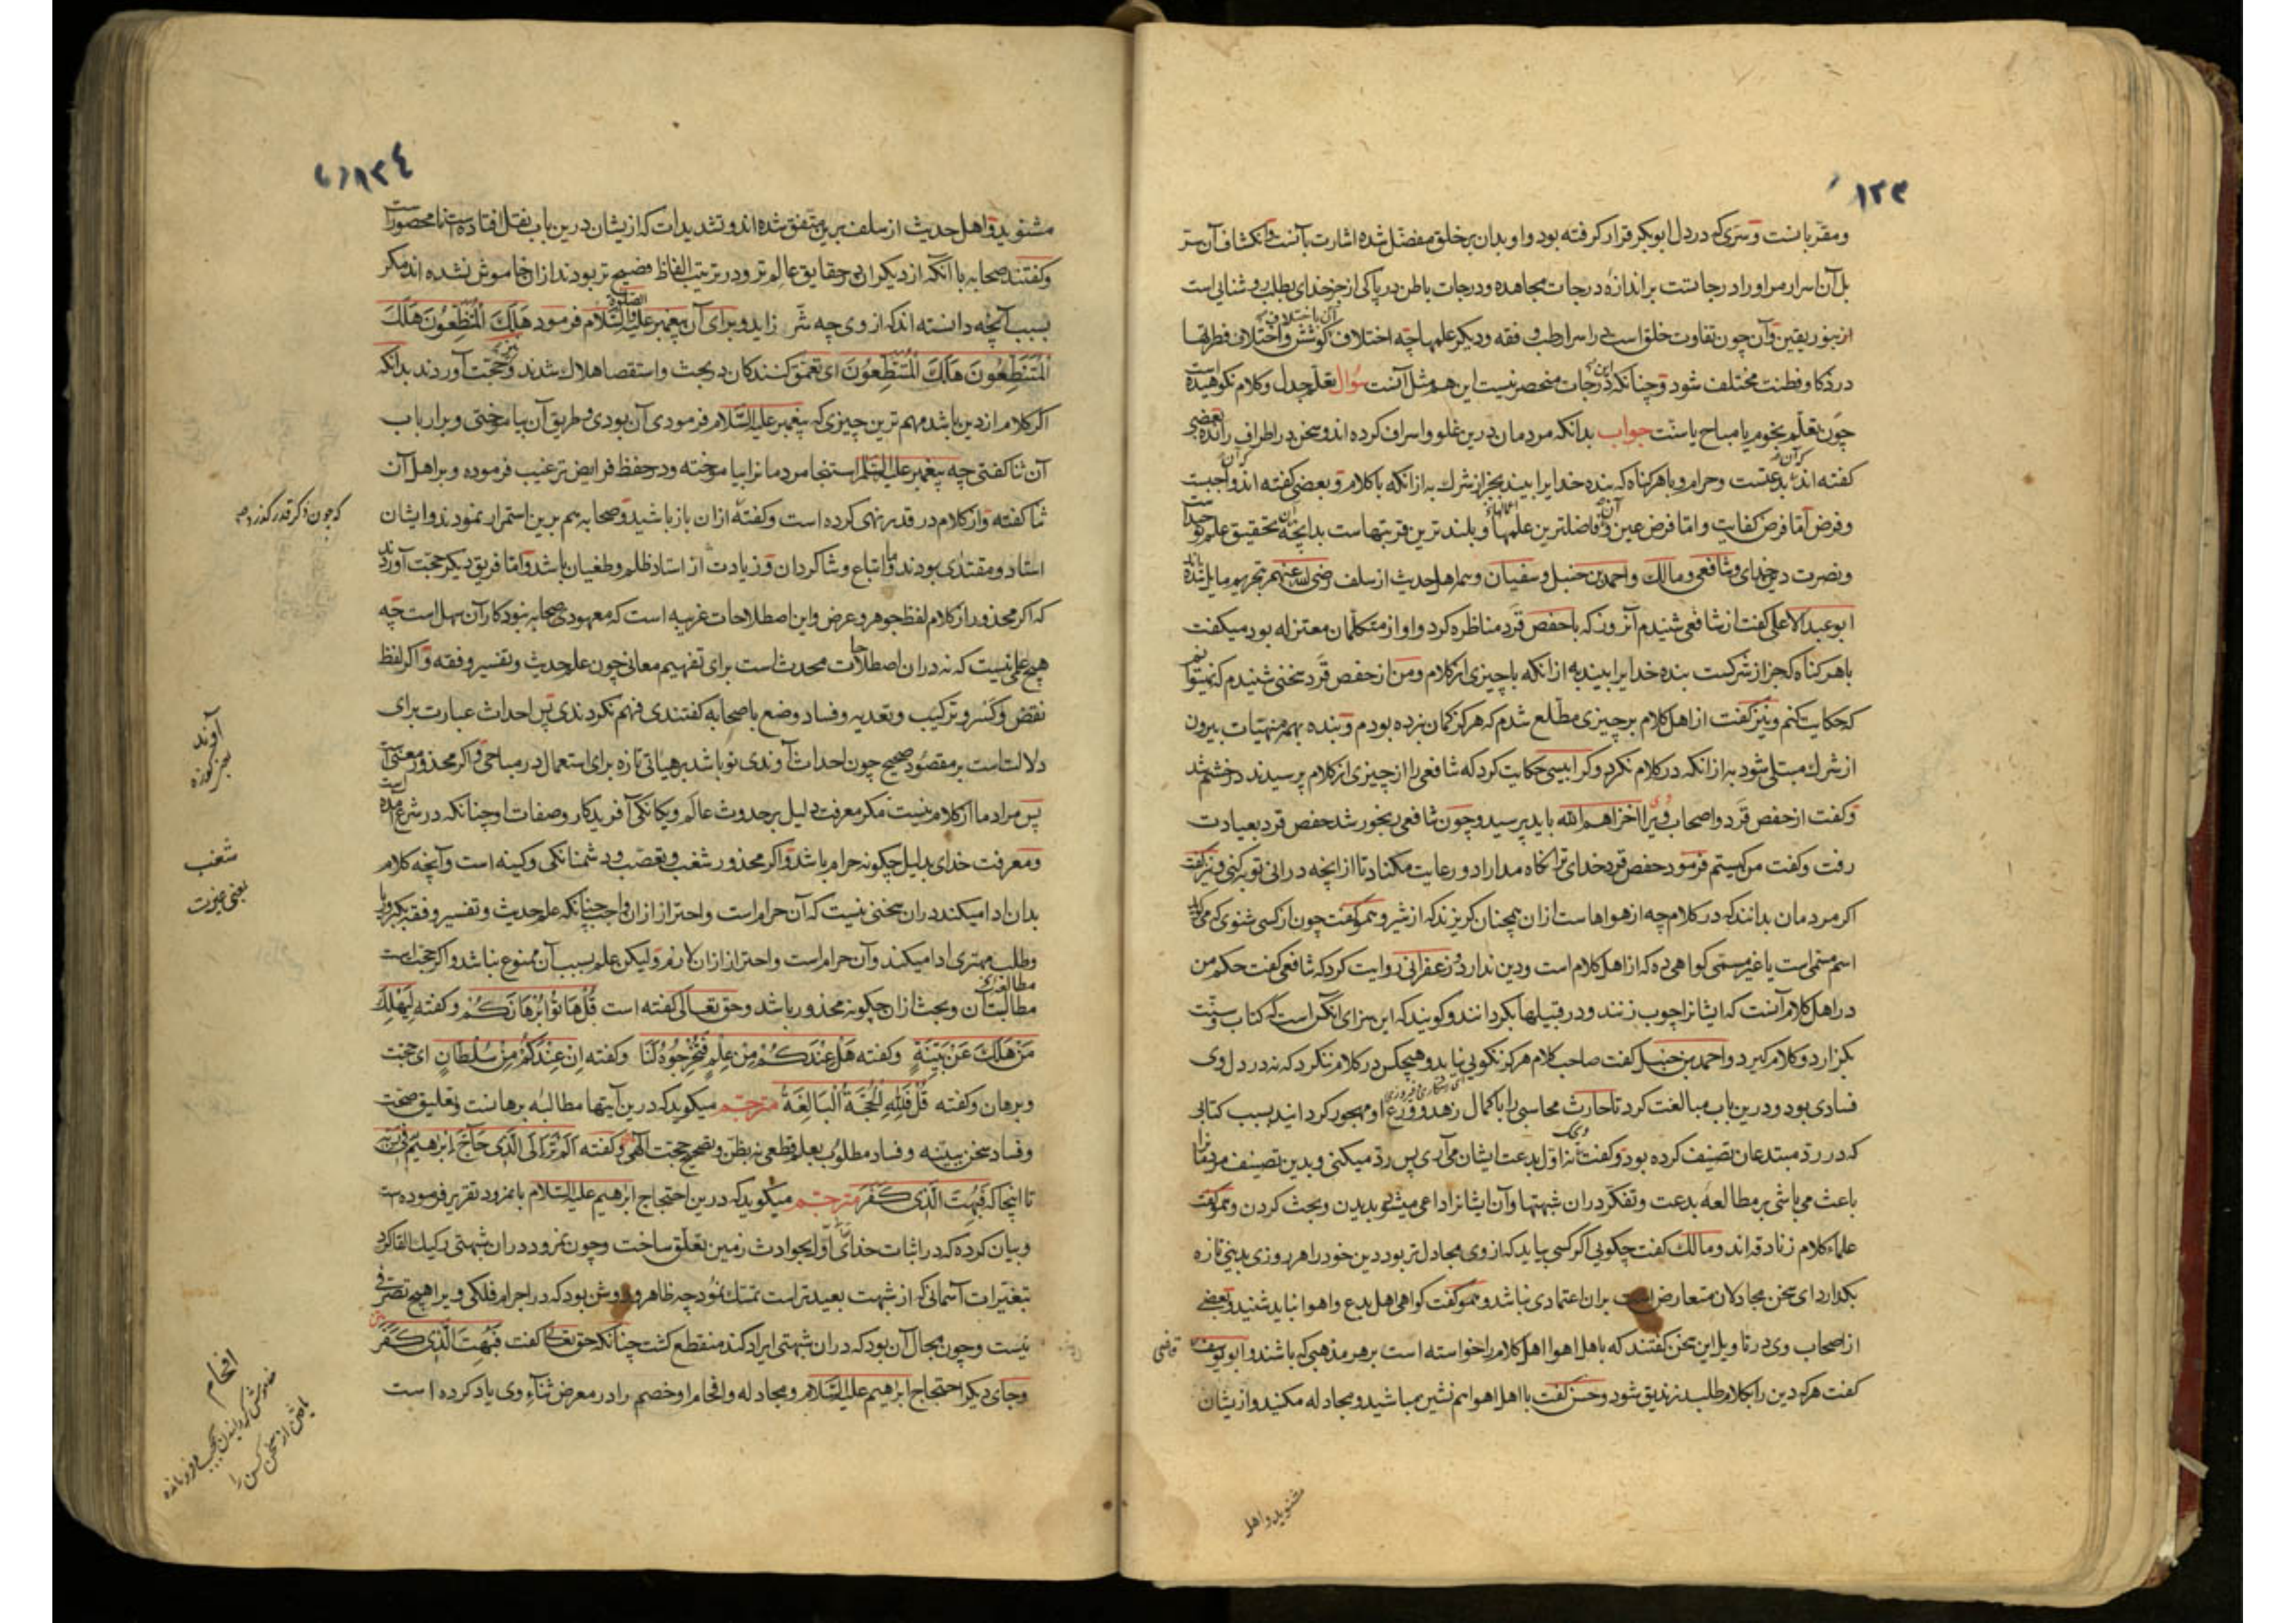 ١٢٣
ومقربانست و سرّی که در دل ابوبکر قرار گرفته بود و او بدان بر خلق مفضّل شده اشارت بآنست و انکشاف آن ستر
بل آن اسرار مر او را درجاتست بر اندازهٔ درجات مجاهده و درجات باطن در پاکی از جز خدای بطلب روشنایی است
از نور یقین و آن چون تفاوت خلق است در اسرار طب و فقه و دیگر علمها چه آن باختلاف کوشش و اختلاف فطرتها
در ذکا و فطنت مختلف شود و چنانکه آن درجات منحصر نیست این هم مثل آنست سؤال تعلّم جدل و کلام نکوهیده است
چون تعلّم نجوم یا مباح یا سنّت جواب بدانکه مردمان درین غلو و اسراف کرده اند و سخن در اطراف رانده بعضی
گفته اند که آن بدعتست و حرام و باهر گناه که بنده خدایرا بیند بجز از شرک به از انکه با کلام و بعضی گفته اند که آن واجبست
و فرض امّا فرض کفایت و امّا فرض عین و آن فاضلترین علمها و بلندترین قربتهاست بدانچه آن تحقیق علم توحید است
و نصرت دین خدای و شافعی و مالک و احمد بن حنبل و سفیان و همه اهل حدیث از سلف رضی الله عنهم بتحریم مایل شده اند
ابو عبد الاعلی گفت از شافعی شنیدم آنروز که با حفص قرد مناظره کرد و او از متکلّمان معتزله بود میگفت
باهر گناه که جز از شرکست بنده خدایرا بیند به از انکه با چیزی از کلام و من از حفص قرد سخنی شنیدم که نمیتوانم
که حکایت کنم و نیز گفت از اهل کلام بر چیزی مطّلع شدم که هرگز گمان نبرده بودم و بنده بهمه منهیّات بیرون
از شرک مبتلی شود به از انکه در کلام نگرد و کرابیسی حکایت کرد که شافعی را از چیزی از کلام پرسیدند در خشم شد
و گفت از حفص قرد و اصحاب وی اخزاهم الله باید پرسید و چون شافعی رنجور شد حفص قرد بعیادت
رفت و گفت من کیستم فرمود حفص قرد خدای ترا نگاه مداراد و رعایت مکناد تا از انچه در انی توبه کنی و نیز گفت
اگر مردمان بدانند که در کلام چه از هواهاست ازان همچنان گریزند که از شیر و همو گفت چون از کسی شنوی که میگوید
اسم مسمّی است یا غیر مسمّی گواهی ده که از اهل کلام است و دین ندارد و زعفرانی روایت کرد که شافعی گفت حکم من
در اهل کلام آنست که ایشانرا چوب زنند و در قبیلها بگردانند و گویند که این سزای آنکس است که کتاب و سنّت
بگزارد و کلام گیرد و احمد بن حنبل گفت صاحب کلام هرگز نکویی نیابد و هیچکس در کلام ننگرد که نه در دل وی
فسادی بود و درین باب مبالغت کرد تا حارث محاسبی را با کمال زهد و ورع او مهجور گردانید بسبب کتابی
که در ردّ مبتدعان تصنیف کرده بود و گفت ویحک نه اوّل بدعت ایشان می آری پس ردّ میکنی و بدین تصنیف مردمانرا
باعث می باشی بر مطالعهٔ بدعت و تفکّر دران شبهتها و آن ایشانرا داعی میشود بدیدن و بحث کردن و همو گفت
علماء کلام زنادقه اند و مالک گفت چگویی اگر کسی بیاید که از وی مجادل تر بود دین خود را هر روزی بدینی تازه
بگذارد ای سخن مجادلان متعارض است بران اعتمادی نباشد و همو گفت گواهی اهل بدع و اهوا نباید شنید و بعضی
از اصحاب وی در تاویل این سخن گفتند که باهل اهوا اهل کلام را خواسته است بر هر مذهبی که باشند و ابو یوسف قاضی
گفت هر که دین را بکلام طلبد زندیق شود و حسن گفت با اهل اهوا هم نشین مباشید و مجادله مکنید و از یشان
مشنوید و اهل
١٢٤
مشنوید و اهل حدیث از سلف برین متّفق شده اند و تشدیدات که از یشان درین باب بنقل افتاده است نا محصور است
و گفتند صحابه با آنکه از دیگران در حقایق عالم تر و در ترتیب الفاظ فصیح تر بودند ازان خاموش نشده اند مگر
بسبب آنچه دانسته اند که از وی چه شر زاید و برای آن پیغمبر علیه الصلوة و السّلام فرمود هَلَكَ الْمُتَنَطِّعُونَ هَلَكَ
الْمُتَنَطِّعُونَ هَلَكَ الْمُتَنَطِّعُونَ ای تعمّق کنندگان در بحث و استقصا هلاک شدند و نیز حجّت آوردند بدانکه
اگر کلام از دین باشد مهم ترین چیزی که پیغمبر علیه السّلام فرمودی آن بودی و طریق آن بیاموختی و بر ارباب
آن ثنا گفتی چه پیغمبر علیه السّلم استنجا مردمانرا بیاموخته و در حفظ فرایض ترغیب فرموده و بر اهل آن
ثنا گفته و از کلام در قدر نهی کرده است و گفته ازان باز باشید و صحابه هم برین استمرار نمودند و ایشان
استاد و مقتدی بودند و ما اتباع و شاگردان و زیادت از استاد ظلم و طغیان باشد و امّا فریق دیگر حجّت آوردند
که اگر محذور از کلام لفظ جوهر و عرض و این اصطلاحات غریبه است که معهود صحابه نبود کار آن سهل است چه
هیچ علمی نیست که نه دران اصطلاحات محدث است برای تفهیم معانی چون علم حدیث و تفسیر و فقه و اگر لفظ
نقض و کسر و ترکیب و تعدیه و فساد وضع با صحابه گفتندی فهم نکردندی پس احداث عبارت برای
دلالت است بر مقصود صحیح چون احداث آوندی نو باشد بر هیأتی تازه برای استعمال در مباحی و اگر محذور معنی است
پس مراد ما از کلام نیست مگر معرفت دلیل بر حدوث عالم و یگانگی آفریدگار و صفات او چنانکه در شرع آمده است
و معرفت خدای بدلیل چگونه حرام باشد و اگر محذور شغب و تعصّب و دشمنانگی و کینه است و آنچه کلام
بدان ادا میکند دران سخنی نیست که آن حرام است و احتراز ازان واجب چنانکه علم حدیث و تفسیر و فقه بکبر و ریا
و طلب مهتری ادا میکند و آن حرام است و احتراز ازان لازم و لیکن علم بسبب آن ممنوع نباشد و اگر حجّت است
مطالبت آن و بحث ازان چگونه محذور باشد و حق تعالی گفته است قُلْ هَاتُوا بُرْهَانَكُمْ و گفته لِيَهْلِكَ
مَنْ هَلَكَ عَنْ بَيِّنَةٍ و گفته هَلْ عِنْدَكُمْ مِنْ عِلْمٍ فَتُخْرِجُوهُ لَنَا و گفته اِنْ عِنْدَكُمْ مِنْ سُلْطَانٍ ای حجّت
و برهان و گفته قُلْ فَلِلّٰهِ الْحُجَّةُ الْبَالِغَةُ مترجم میگوید که درین آیتها مطالبهٔ برهانست و تعلیق صحّت
و فساد سخن ببیّنه و فساد مطلوب بعلم قطعی نه بظن و تصحیح حجّت الهی و گفته اَلَمْ تَرَ اِلَى الَّذِي حَاجَّ اِبْرٰهِيمَ فِي رَبِّهِ
تا اینجا که فَبُهِتَ الَّذِي كَفَرَ مترجم میگوید که درین احتجاج ابرهیم علیه السّلام با نمرود تقریر فرموده است
و بیان کرده که در اثبات خدای اوّل بحوادث زمین تعلّق ساخت و چون نمرود دران شبهتی رکیک القا کرد
بتغیّرات آسمانی که از شبهت بعیدتر است تمسّک نمود چه ظاهر و روشن بود که در اجرام فلکی ویرا هیچ تصرّفی
نیست و چون مجال آن بود که دران شبهتی ایراد کند منقطع گشت چنانکه حق تعالی گفت فَبُهِتَ الَّذِي كَفَرَ
و جای دیگر احتجاج ابرهیم علیه السّلام و مجادله و افحام او خصم را در معرض ثناء وی یاد کرده است
که چون ذکر قدر گذرد
آوند
سبز کوزه
شغب
افحام